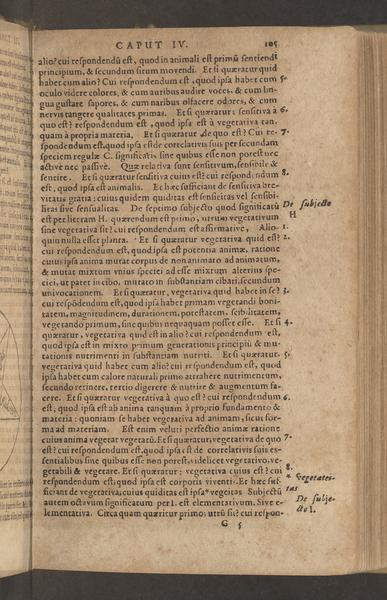 CAPUT IV. 105
alio? cui respondendũ est, quod in animali est primũ sentiendi
principium, & secundum situm movendi. Et si quæratur quid
habet cum alio? Cui respondendum est, quod ipsa habet cum 5.
oculo videre colores, & cum auribus audire voces, & cum lin-
gua gustare sapores, & cum naribus olfacere odores, & cum
nervis tangere qualitates primas. Et si quæratur: sensitiva à 6.
quo est? respondendum est, quod ipsa est à vegetativa tan-
quam à propria materia. Et si quæratur de quo est? Cui re- 7.
spondendum est, quod ipsa est de correlativis suis per secundam
speciem regulæ C. significatis sine quibus esse non potest nec
activè nec passivè. Quæ relativa sunt sensitivum, sensibile &
sentire. Et si quæratur sensitiva cuius est? cui respondendum 8.
est, quod ipsa est animalis. Et hæc sufficiant de sensitiva bre-
vitatis gratia: cuius quidem quiditas est sensitivitas vel sensibi-
litas sive sensualitas. De septimo subjecto quod significatũ De subjecto
est per literam H. quærendum est primò, utrum vegetativum H
sine vegetativa sit? cui respondendum est affirmativè, Alio- 1.
quin nulla esset planta. Et si quæratur vegetativa quid est? 2.
cui respondendum est, quod ipsa est potentia animæ, ratione
cuius ipsa anima mutat corpus de non animato ad animatum,
& mutat mixtum unius speciei ad esse mixtum alterius spe-
ciei, ut patet in cibo, mutato in substantiam cibati, secundum
univocationem. Et si quæratur, vegetativa quid habet in se? 3.
cui respõdendum est, quod ipsa habet primam vegetandi boni-
tatem, magnitudinem, durationem, potestatem, scibilitatem,
vegetando primum, sine quibus nequaquam posset esse. Et si 4.
quæratur, vegetativa quid est in alio? cui respondendum est,
quod ipsa est in mixto primum generationis principiũ & mu-
tationis nutrimenti in substantiam nutriti. Et si quæratur, 5.
vegetativa quid habet cum alio? cui respondendum est, quod
ipsa habet cum calore naturali primo attrahere nutrimentum,
secundo retinere, tertio digerere & nutrire & augmentum fa-
cere. Et si quæratur vegetativa à quo est? cui respondendum 6.
est, quod ipsa est ab anima tanquam à proprio fundamento &
materia: quoniam se habet vegetativa ad animam, sicut for-
ma ad materiam. Est enim veluti perfectio animæ ratione
cuius anima vegetat vegetatũ. Et si quæratur, vegetativa de quo 7.
est? cui respondendum est, quod ipsa est de correlativis suis es-
sentialibus sine quibus esse non potest, videlicet vegetativo, ve-
getabili & vegetare. Et si quæratur: vegetativa cuius est? cui 8.
respondendum est; quod ipsa est corporis viventis. Et hæc suf- * Vegetatei-
ficiant de vegetativa, cuius quiditas est ipsa* vegeitas. Subjectũ tas
autem octavum significatum per I. est elementativum. Sive e- De subje-
lementativa. Circa quam quæritur primò; utrũ sit? cui respon- cto I.
G 5